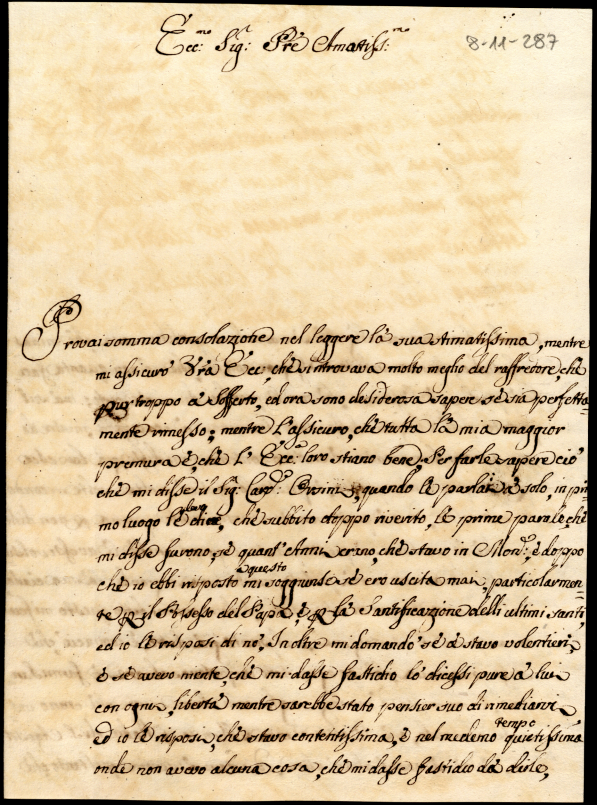 Ecc:mo Sig:r P're Amatiss:mo
8-11-287
Provai somma consolazione nel leggere la sua stimatissima, mentre
mi assicurò V'ra Ecc: che si ritrovava molto meglio del raffredore, che
pur troppo à sofferto, ed ora sono desiderosa sapere se sia perfetta=
mente rimesso; mentre l'assicuro, che tutta la mia maggior
premura è, che l'Ecc:e loro stiano bene. Per farle sapere ciò
che mi disse il Sig: Card: Orsini, quando le parlai à solo, in pri
mo luogo le dico, che subbito doppo riverito, le prime parole, che
mi disse furono, se quant'Anni erino, che stavo in Mon:, e doppo
che io ebbi risposto à questo mi soggiunse se ero uscita mai, particolarmen=
te p il Possesso del Papa, e p la Santificazione delli ultimi santi,
ed io le risposi di nò. In oltre mi domandò se ci stavo volentieri,
e se avevo niente, che mi dasse fastidio lo dicessi pure à lui
con ogni libertà mentre sarebbe stato pensier suo di rimediarvi,
ed io le risposi, che stavo contentissima, e nel medemo tempo quietissima
onde non avevo alcuna cosa, che mi dasse fastidio da dirle,